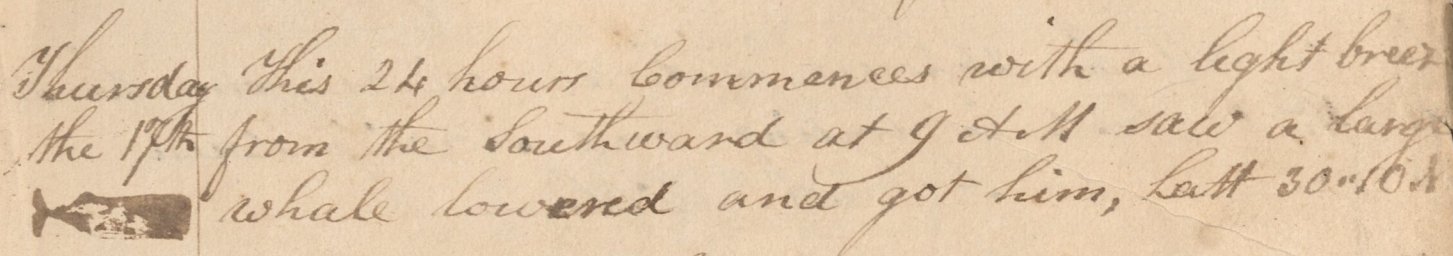 Thursday This 24 hours Commences with a light breez
the 17th from the Southward at 9 AM saw a large
whale lowered and got him, Latt 30"10 N